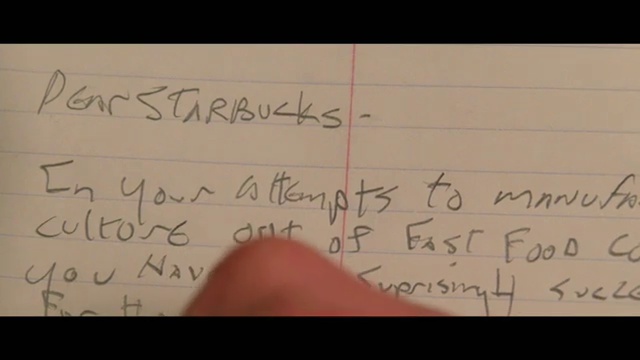 Dear STARBUCKS -
In your attempts to manufa
culture out of FAST FOOD Co
you Hav suprisingly succe
For th